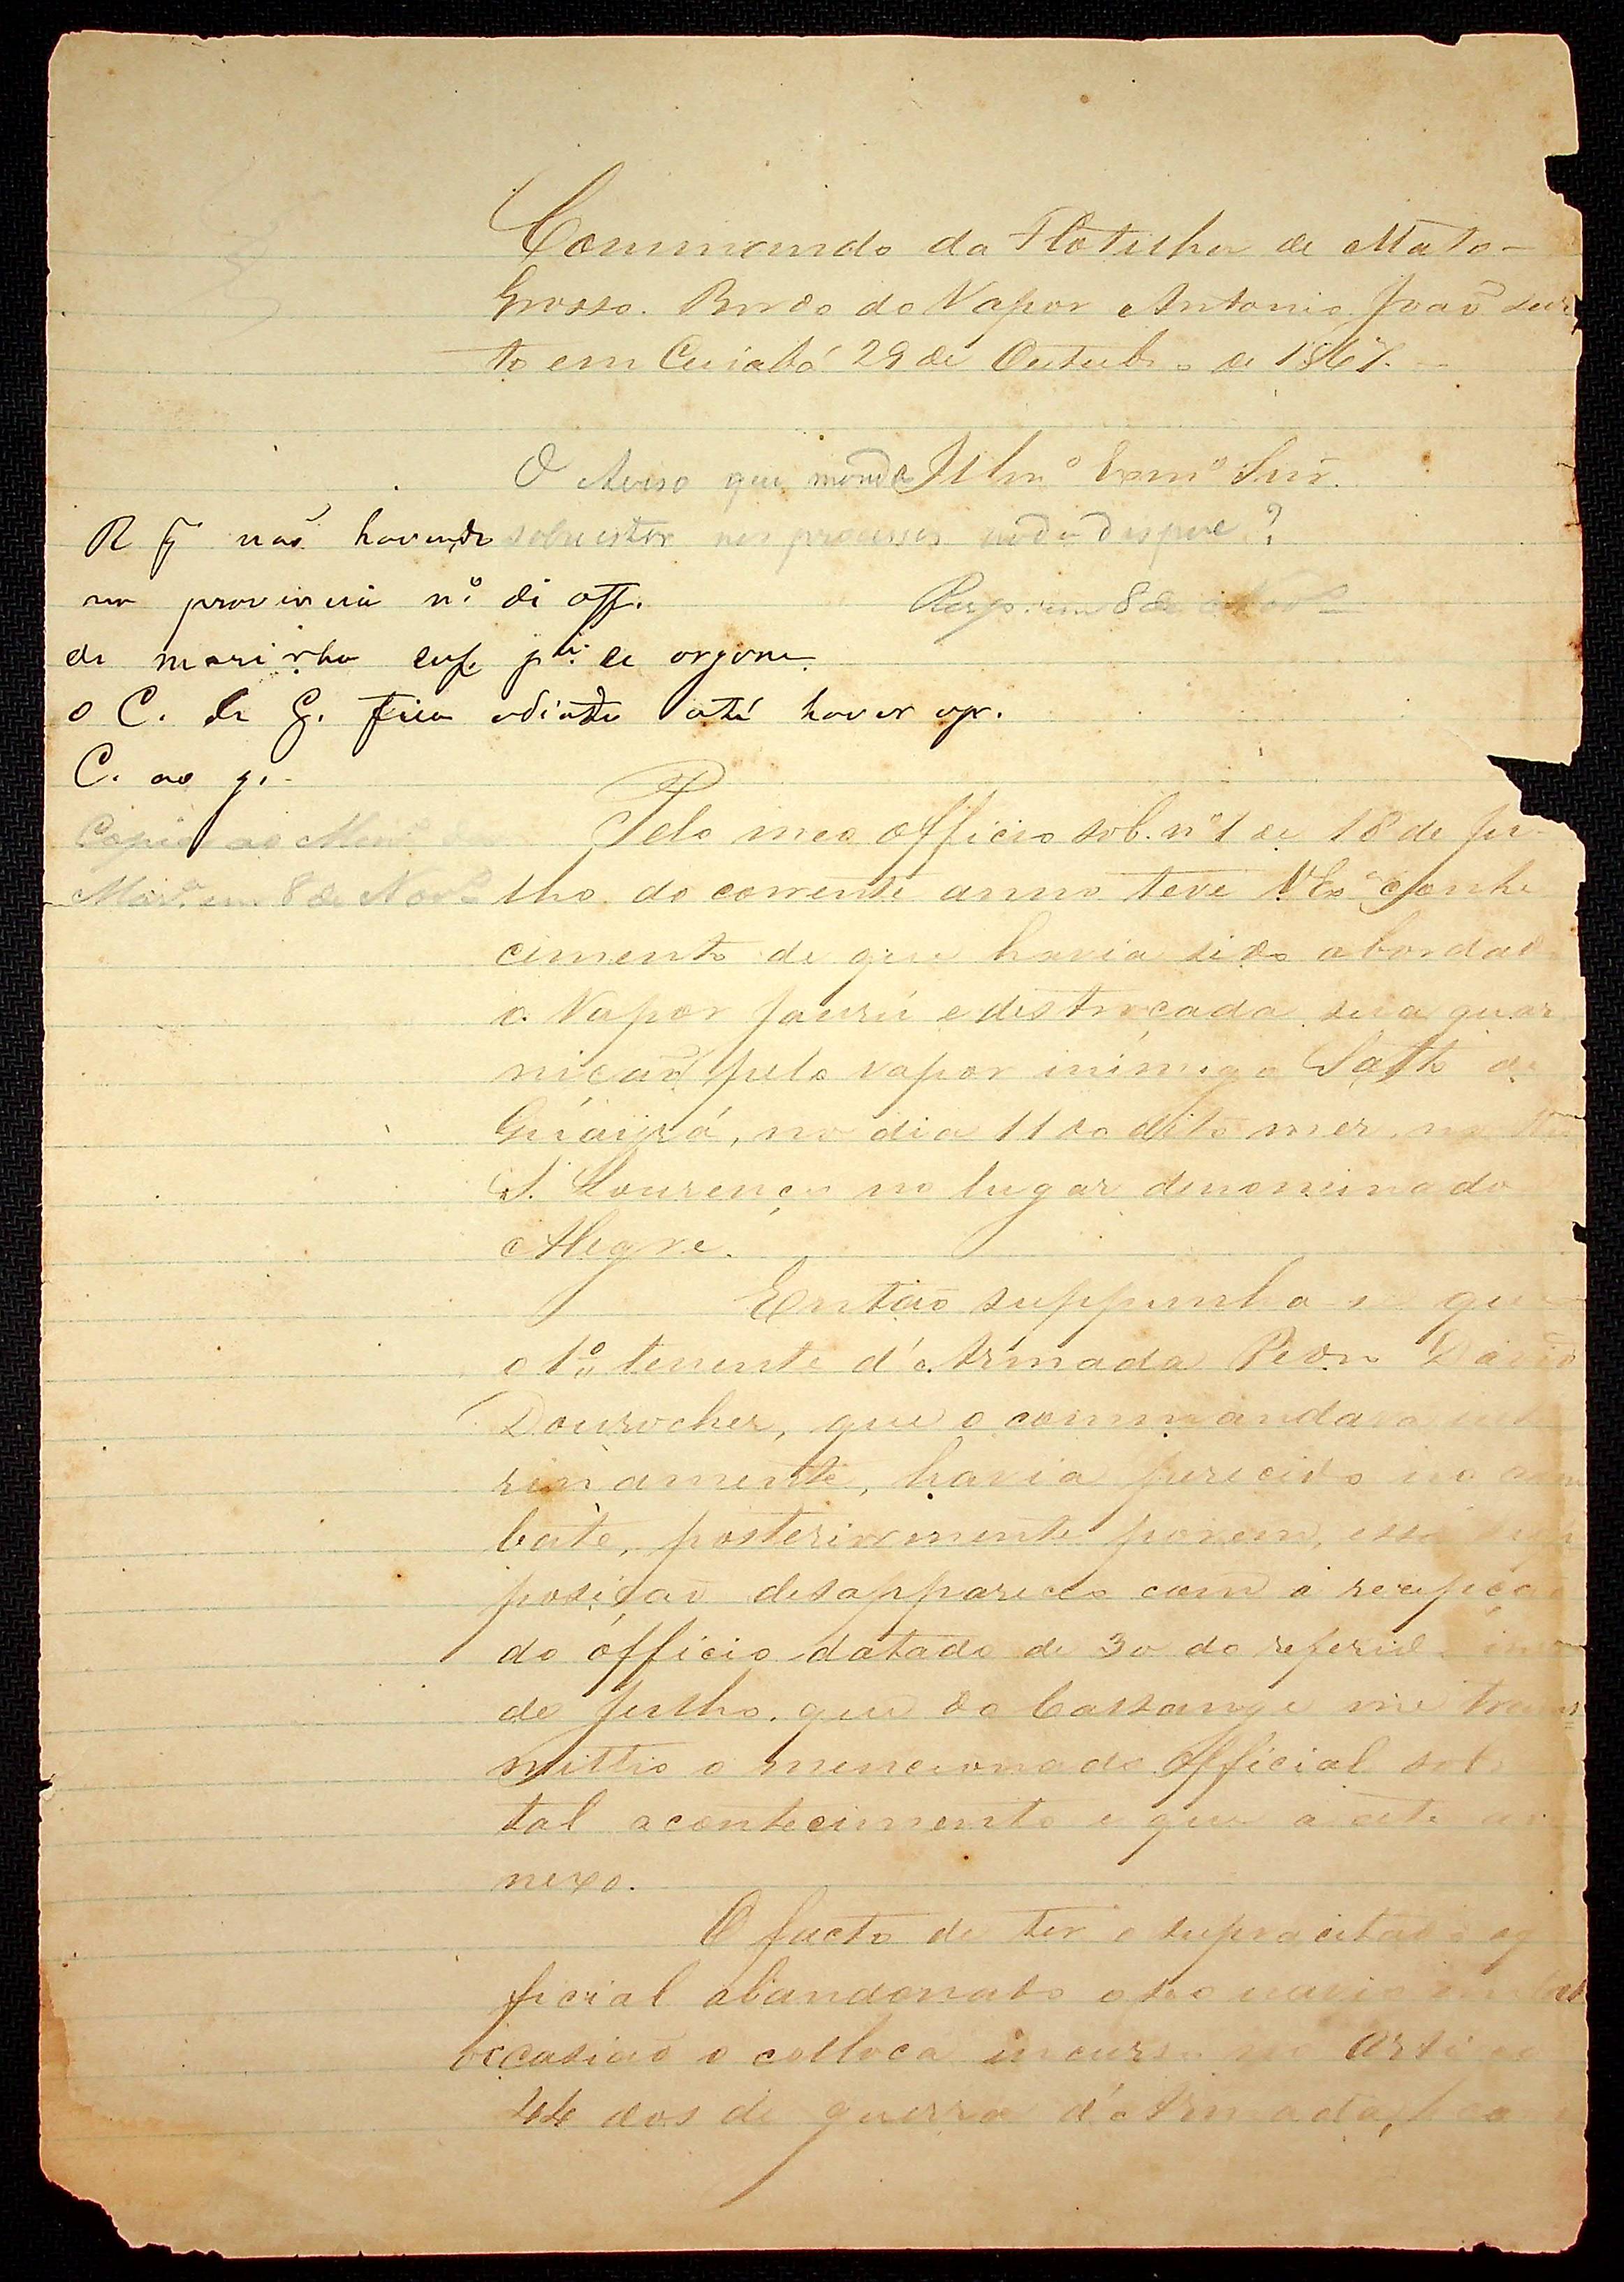 Commando da Flotilha de Mato-
Grosso. Bordo do Vapor Antonio João sur
to em Cuiabá 29 de Outubro de 1867.
Illmº Exmº Snr.
O Aviso que manda
sobreestar nos processos nada dispoe?
Resp. em 8 de Novº
R q naõ havendo
na provincia nº de off.
de marinha suf. pª se organi
o C. de G. fica adiado até haver opr.
C. ao g.
Copia ao Minº da
Marª em 8 de Novº
Pelo meo officio sob. nº 1 de 18 de Ju-
lho do corrente anno teve VExª conhe
cimento de que havia sido abordado
o Vapor Jaurú e destroçada sua guar
niçaõ pelo vapor inimigo Salto de
Guairá, no dia 11 do dito mez, no Rio
S. Lourenço no lugar denominado
Alegre.
Então suppunha se que
o 1º tenente d'Armada Pedro David
Dourocher, que o commandava inte
rinamente, havia perecido no com
bate, posteriormente porem, essa sup
posiçaõ desappareceo com a recepçaõ
do officio datado de 30 do referido
de Julho, que do Cassange me trans
mittio o mencionado official sobre
tal acontecimento e que a este an
nexo.
O facto de ter o supracitado of
ficial abandonado o seo navio em tal
occasiaõ o colloca incurso no Artigo
44 dos de guerra d'Armada,